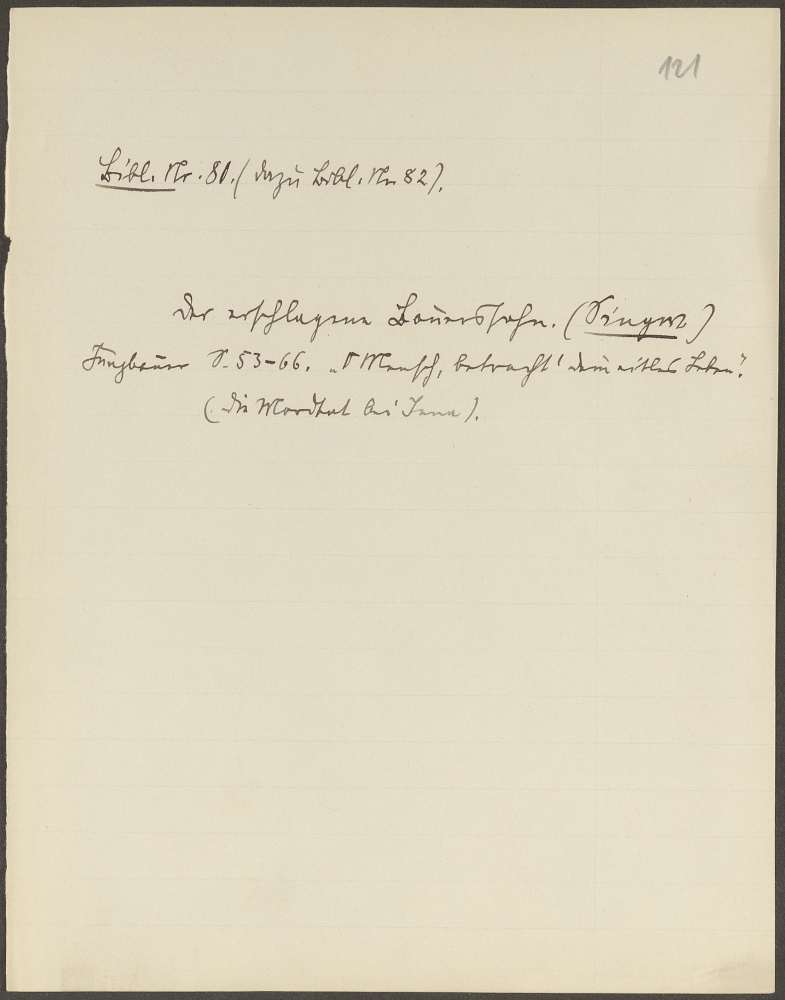 121
Bibl. Nr. 81. (dazu Bibl. Nr. 82).
Der erschlagene Bauerssohn. (Singer)
Jungbauer S. 53-66. „O Mensch, betracht' dein eitles Leben".
(Die Mordtat bei Jena).